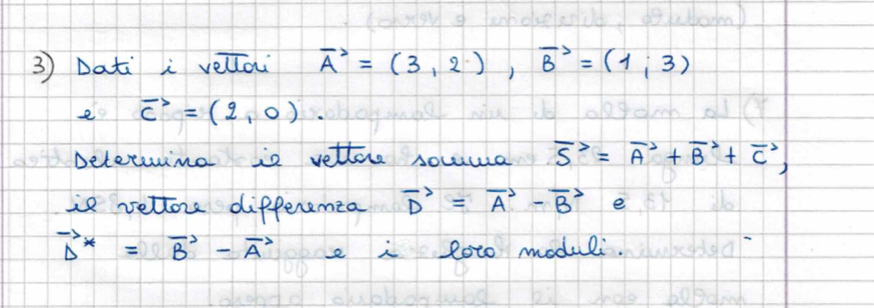 3) Dati i vettori A⃗ = (3, 2), B⃗ = (1; 3)
e C⃗ = (2, 0).
Determina il vettore somma S⃗ = A⃗ + B⃗ + C⃗,
il vettore differenza D⃗ = A⃗ - B⃗ e
D⃗* = B⃗ - A⃗ e i loro moduli.